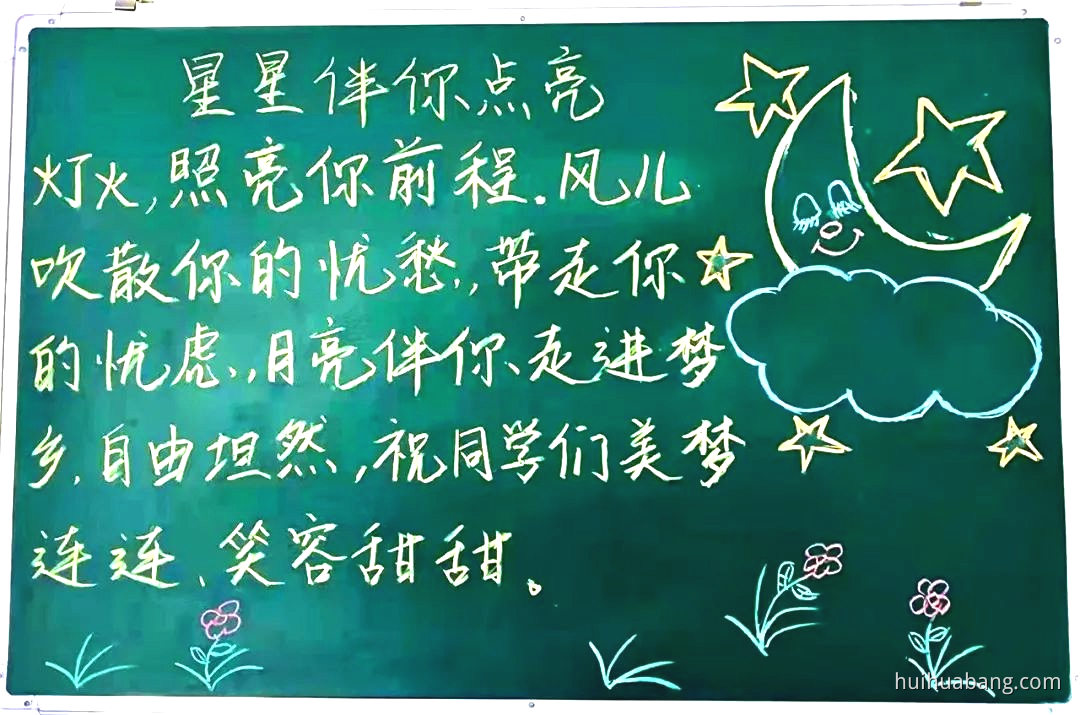 星星伴你点亮
灯火,照亮你前程.风儿
吹散你的忧愁,,带走你
的忧虑,,月亮伴你走进梦
乡.自由坦然,祝同学们美梦
连连、笑容甜甜。
huihuabang.com